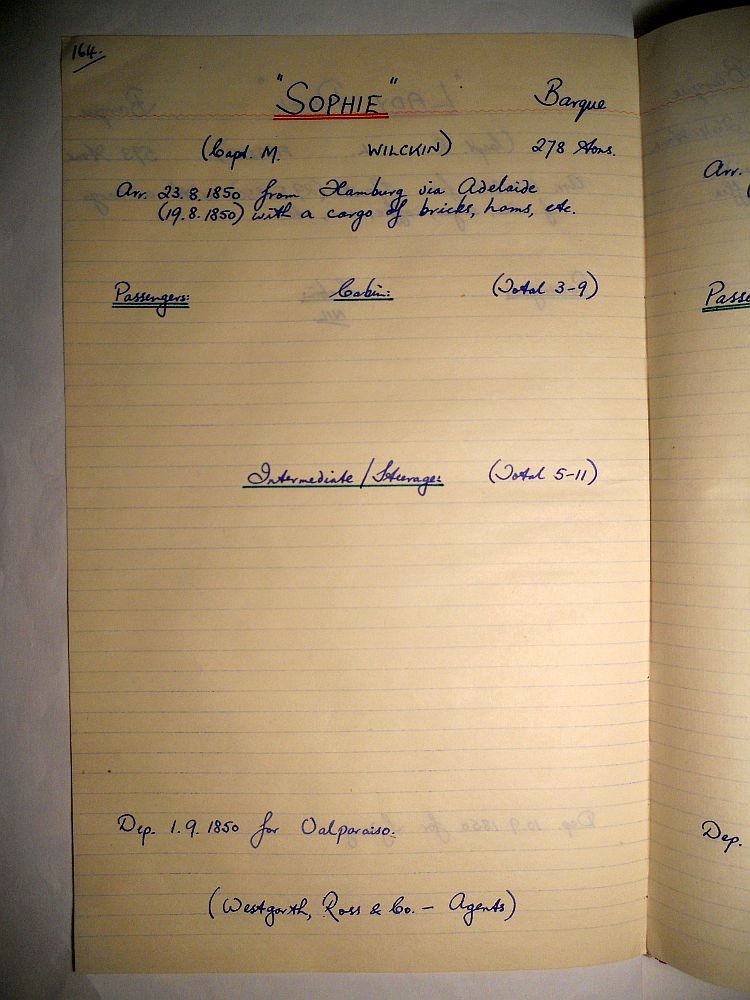 164.
"SOPHIE" Barque
(Capt. M. WILCKIN) 278 tons.
Arr. 23.8.1850 from Hamburg via Adelaide
(19.8.1850) with a cargo of bricks, hams, etc.
Passengers: Cabin: (Total 3-9)
Intermediate/Steerage: (Total 5-11)
Dep. 1.9.1850 for Valparaiso.
(Westgarth, Ross & Co. - Agents)
Arr.
Passe
Dep.